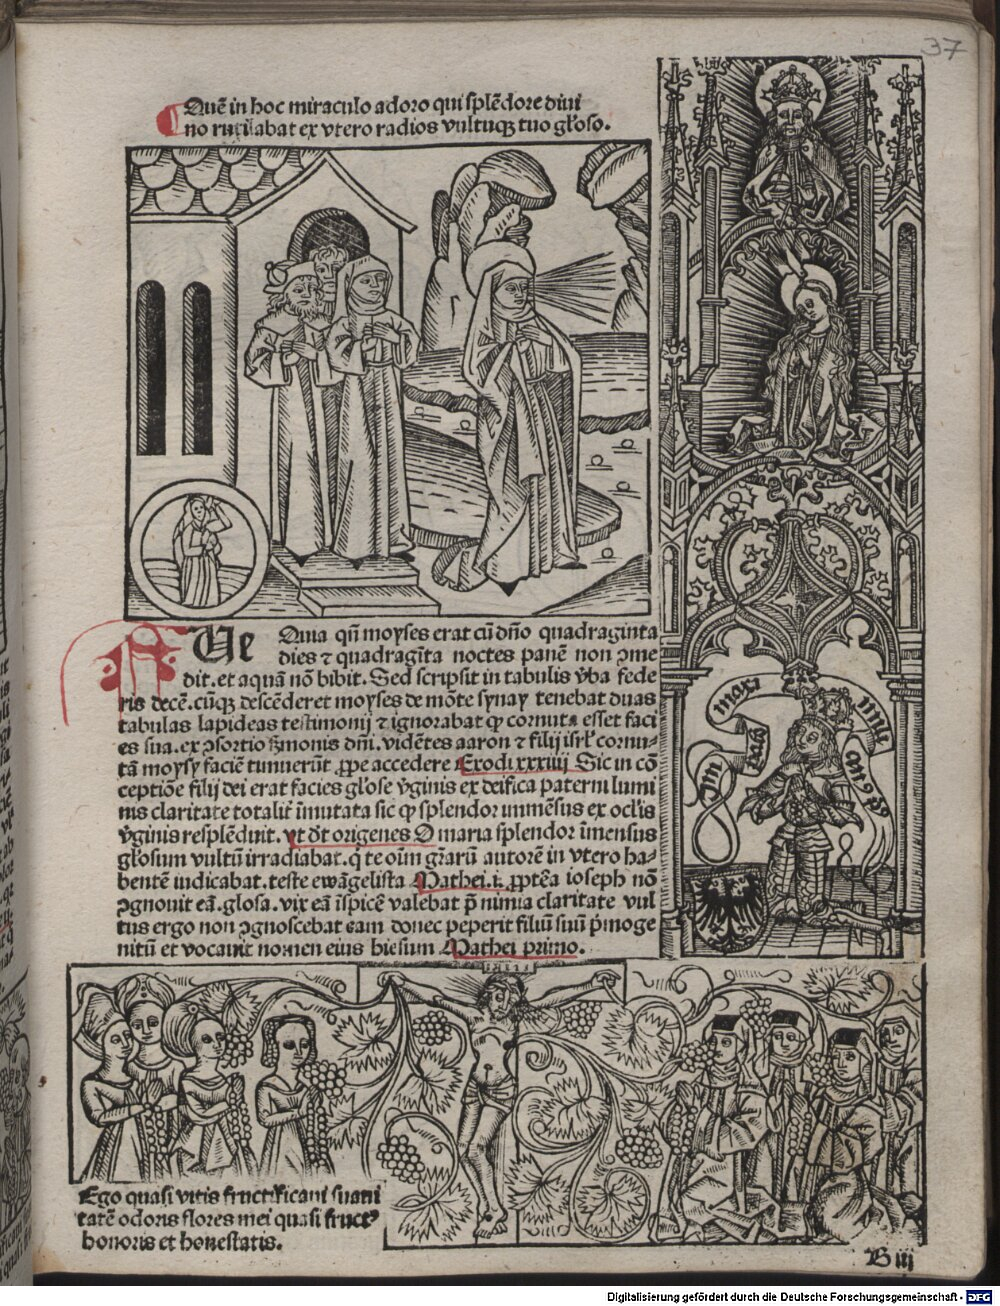 37
Quē in hoc miraculo adoro qui splēdore diui
no rutilabat ex vtero radios vultuqꝫ tuo gl'oso.
Ue Quia qn̄ moyses erat cū dn̄o quadraginta
dies ⁊ quadragīta noctes panē non ꝯme
dit. et aquā nō bibit. Sed scripsit in tabulis v̄ba fede
ris decē. cūqꝫ descēderet moyses de mōte synay tenebat duas
tabulas lapideas testimonij ⁊ ignorabat ꝙ cornuta esset faci
es sua. ex ꝯsortio s̄monis dn̄i. vidētes aaron ⁊ filij isrl' cornu-
tā moysy faciē timuerūt ꝓpe accedere Exodi xxxiiij Sic in cō
ceptiōe filij dei erat facies gl'ose v̄ginis ex deifica paterni lumi
nis claritate totalit' īmutata sic ꝙ splendor immēsus ex ocl'is
v̄ginis resplēduit. vt dt̄ origenes O maria splendor īmensus
gl'osum vultū irradiabat. q̄ te oīm gr̄arū autorē in vtero ha-
bentē indicabat. teste ewāgelista Mathei .i. ꝓptēa ioseph nō
ꝯgnouit eā. glosa. vix eā īspicē valebat p̄ nimia claritate vul
tus ergo non ꝯgnoscebat eam donec peperit filiū suū p̄moge
nitū et vocauit nomen eius hiesum Mathei primo.
maxi
mili
Ego quasi vitis fructificaui suaui
tatē odoris flores mei quasi fruct⁹
honoris et honestatis.
B iij
Digitalisierung gefördert durch die Deutsche Forschungsgemeinschaft - DFG